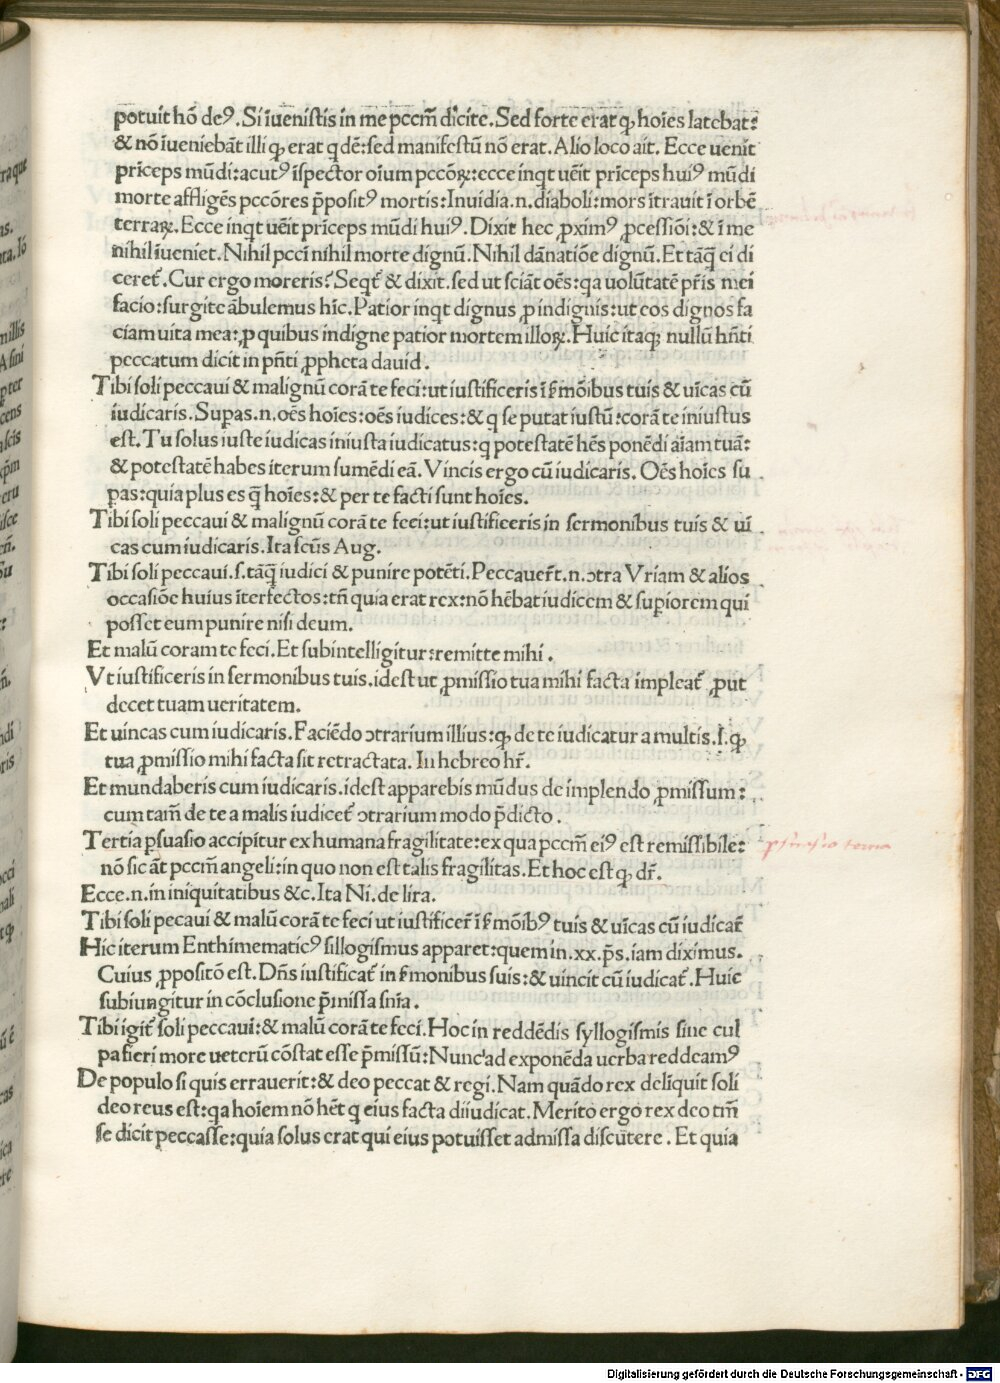 potuit hō deꝰ. Si īueniſtis in me pccm̄ dicite. Sed forte erat ꝙ hoīes latebat:
& nō īueniebāt illi ꝙ erat q dē: sed manifeſtū nō erat. Alio loco ait. Ecce uenit
prīceps mūdi: acutꝰ īſpector oium pccōꝝ: ecce inqt uēit prīceps huiꝰ mūdi
morte affligēs pccōres p̄poſitꝰ mortis: Inuidia .n. diaboli: mors ītrauit ī orbē
terraꝝ. Ecce inqt uēit prīceps mūdi huiꝰ. Dixit hec ꝓximꝰ ꝓceſſiōi: & ī me
nihil īueniet. Nihil pccī nihil morte dignū. Nihil dānatiōe dignū. Et tāq̄ ei di
ceret̄. Cur ergo moreris? Seqt̄ & dixit. ſed ut ſciāt oēs: qa uolūtatē pr̄is mei
facio: ſurgite ābulemus hīc. Patior inqt dignus ꝓ indignis: ut eos dignos fa
ciam uita mea: ꝓ quibus indigne patior mortem illoꝝ. Huic itaqꝫ nullū hn̄ti
peccatum dicit in pn̄ti ꝓpheta dauid.
Tibi ſoli peccaui & malignū corā te feci: ut iuſtificeris ī ẜmōibus tuis & uīcas cū
iudicaris. Supas .n. oēs hoīes: oēs iudices: & q ſe putat iuſtū: corā te iniuſtus
eſt. Tu ſolus iuſte iudicas iniuſta iudicatus: q poteſtatē hēs ponēdi aīam tuā:
& poteſtatē habes iterum ſumēdi eā. Vincis ergo cū iudicaris. Oēs hoīes ſu
pas: quia plus es q̄ hoīes: & per te facti ſunt hoīes.
Tibi ſoli peccaui & malignū corā te feci: ut iuſtificeris in ſermonibus tuis & uī
cas cum iudicaris. Ita ſcūs Aug.
Tibi ſoli peccaui .ſ. tāq̄ iudici & punire potēti. Peccauer̄t .n. ɔtra Vriam & alios
occaſiōe huius īterfectos: tn̄ quia erat rex: nō hēbat iudicem & ſupiorem qui
poſſet eum punire niſi deum.
Et malū coram te feci. Et ſubintelligitur: remitte mihi.
Vt iuſtificeris in ſermonibus tuis .ideſt ut ꝓmiſſio tua mihi facta impleat̄ ꝓut
decet tuam ueritatem.
Et uincas cum iudicaris. Faciēdo ɔtrarium illius: ꝙ de te iudicatur a multis .ſ. ꝙ
tua ꝓmiſſio mihi facta ſit retractata. In hebreo hr̄.
Et mundaberis cum iudicaris .ideſt apparebis mūdus de implendo ꝓmiſſum:
cum tam̄ de te a malis iudicet̄ ɔtrarium modo p̄dicto.
Tertia pſuaſio accipitur ex humana fragilitate: ex qua pccm̄ eiꝰ eſt remiſſibile:
nō ſic āt pccm̄ angeli: in quo non eſt talis fragilitas. Et hoc eſt ꝙ dr̄.
Ecce .n. in iniquitatibus &c. Ita Ni. de lira.
Tibi ſoli pecaui & malū corā te feci ut iuſtificer̄ ī ẜmōibꝰ tuis & uīcas cū iudicat̄
Hic iterum Enthimematicꝰ ſillogiſmus apparet: quem in .xx. pſ̄. iam diximus.
Cuius ꝓpoſitō eſt. Dn̄s iuſtificat̄ in ẜmonibus ſuis: & uincit cū iudicat̄. Huic
ſubiungitur in cōcluſione p̄miſſa ſnīa.
Tibi igit̄ ſoli peccaui: & malū corā te feci. Hoc in reddēdis ſyllogiſmis ſine cul
pa fieri more ueterū cōſtat eſſe p̄miſſū: Nunc ad exponēda uerba reddeamꝰ
De populo ſi quis errauerit: & deo peccat & regi. Nam quādo rex deliquit ſoli
deo reus eſt: qa hoīem nō hēt q eius facta diiudicat. Merito ergo rex deo tm̄
ſe dicit peccaſſe: quia ſolus erat qui eius potuiſſet admiſſa diſcutere. Et quia
pſuaſio terna
Digitalisierung gefördert durch die Deutsche Forschungsgemeinschaft - DFG